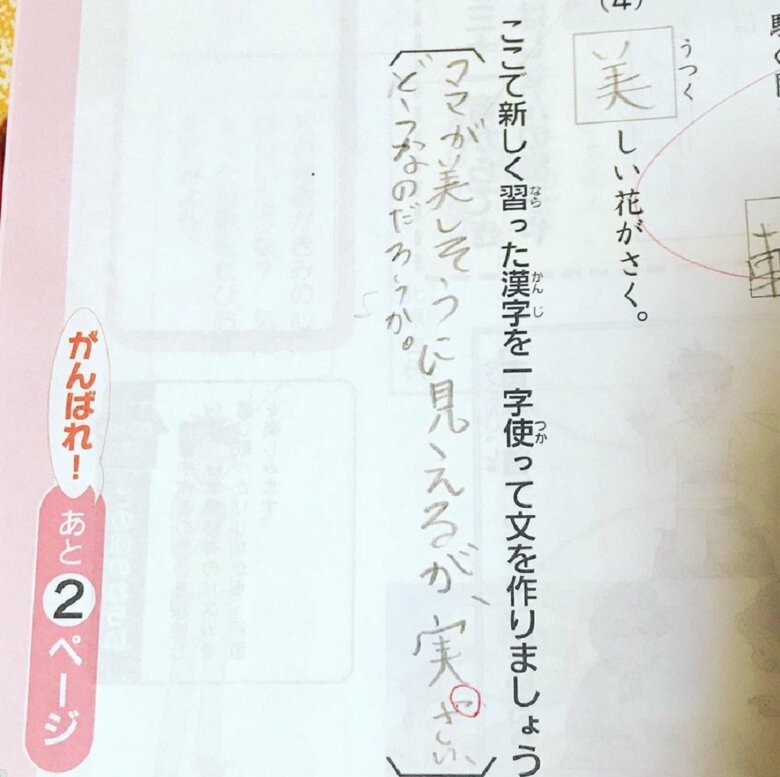 (4)
美しい花がさく。
うつく
ここで新しく習った漢字を一字使って文を作りましょう
なら
かん
じ
つか
ママが美しそうに見えるが、実さい、
どうなのだろうか。
がんばれ!
あと2ページ